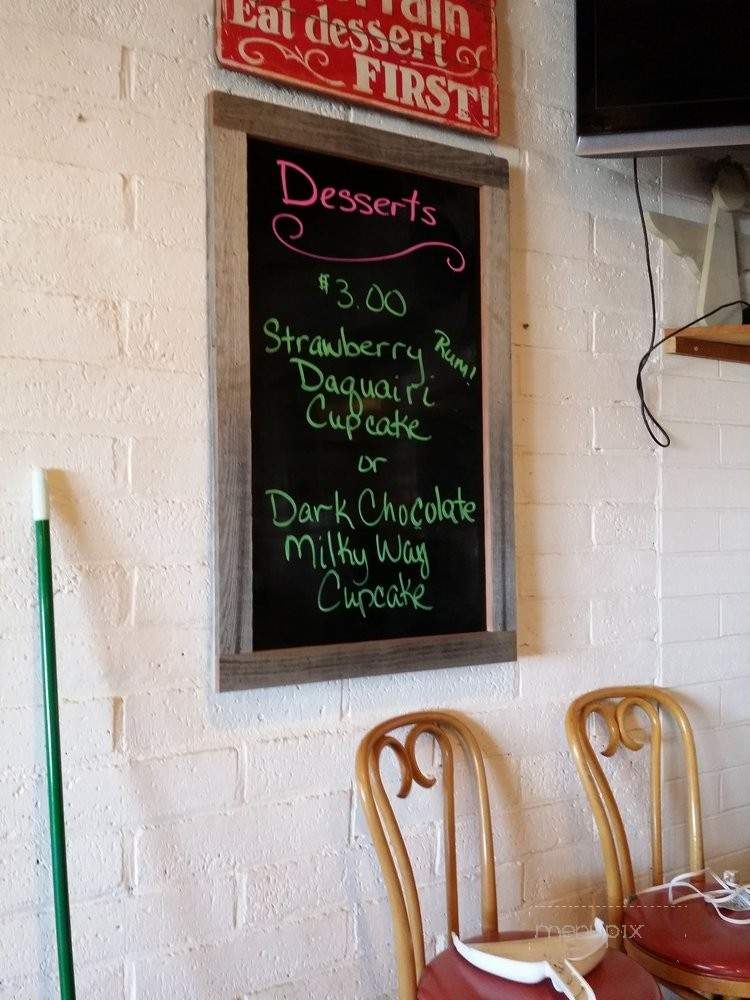 Eat dessert
FIRST!
Desserts
$3.00
Strawberry Rum!
Daquairi
Cupcake
or
Dark Chocolate
Milky Way
Cupcake
menupix